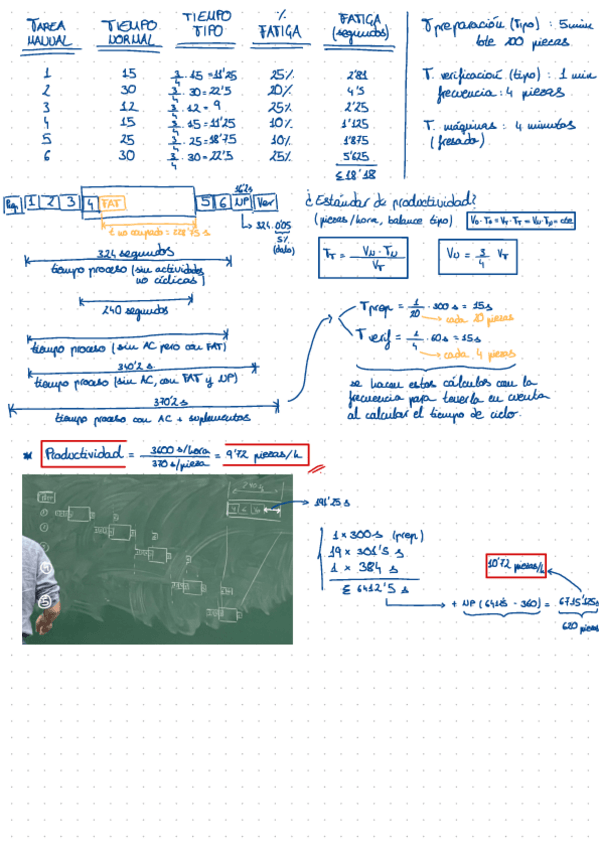 TAREA MANUAL TIEMPO NORMAL TIEMPO TIPO % FATIGA FATIGA (segundos)
1 15 3/4 · 15 = 11'25 25% 2'81
2 30 3/4 · 30 = 22'5 20% 4'5
3 12 3/4 · 12 = 9 25% 2'25
4 15 3/4 · 15 = 11'25 10% 1'125
5 25 3/4 · 25 = 18'75 10% 1'875
6 30 3/4 · 30 = 22'5 25% 5'625
Σ 18'18
T preparación (Tipo) : 5 min
lote 200 piezas
T. verificación (tipo) : 1 min
frecuencia : 4 piezas
T. máquinas : 4 minutos
(fresado)
1 2 3 4 FAT 5 6 NP Ver
324 · 0'05
5%
(dato)
324 segundos
tiempo proceso (sin actividades
no cíclicas)
240 segundos
tiempo proceso (sin AC pero con FAT)
340'2 s
tiempo proceso (sin AC, con FAT y NP)
370'2 s
tiempo proceso con AC + suplementos
¿Estándar de productividad?
(piezas/hora, balance tipo)
T_T = V_N · T_N / V_T
V_N = 3/4 V_T
T prep = 1/20 · 300 s = 15 s
cada 20 piezas
T verif = 1/4 · 60 s = 15 s
cada 4 piezas
se hacen estos cálculos con la
frecuencia para tenerla en cuenta
al calcular el tiempo de ciclo.
* Productividad = 3600 s/hora / 370 s/pieza = 9'72 piezas/h
191'25 s
1 × 300 s (prep)
19 × 301'5 s
1 × 384 s
Σ 6412'5 s
10'72 piezas/h